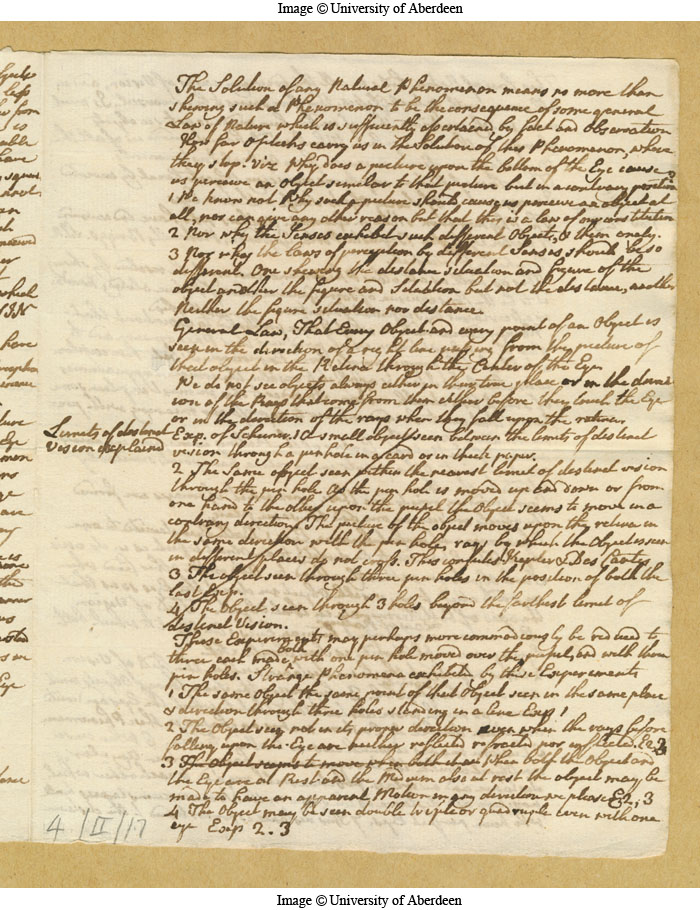 Image © University of Aberdeen
The Solution of any Natural Phenomenon means no more than
shewing such a Phenomenon to be the consequence of some general
Law of Nature which is sufficiently ascertained by fact and Observation
How far Opticks carry us in the Solution of this Phenomenon, where
they stop. viz Why does a picture upon the bottom of the Eye cause
us perceive an Object similar to that picture but in a contrary position?
1 We know not Why such a picture should cause us perceive an object at
all, nor can give any other reason but that this is a law of our constitution
2 Nor why the Senses exhibit such different Objects, & them onely.
3 Nor why the laws of perception by different Senses should be so
different. One shewing the distance Situation and figure of the
object another the figure and Situation but not the distance, another
Neither the figure situation nor distance.
General Law, That Every Object and every point of an Object is
seen in the direction of a right line passing from the picture of
that object in the Retina through the Center of the Eye
We do not see objects always either in their true place or in the direc
ion of the Rays that come from them either before they touch the Eye
or in the direction of the rays when they fall upon the retina.
Limits of distinct
vision explained
Exp. of Scheiner. 1 A small object seen between the limits of distinct
vision through a pin hole in a card or in thick paper.
2 The Same object seen within the nearest limit of distinct vision
through the pin hole As the pin hole is moved up and down or from
one hand to the other upon the pupil the Object seems to move in a
contrary direction. The picture of the object moves upon the retina in
the same direction with the pin hole, rays by which the Object is seen
in different places do not cross. This confutes Kepler & Des Cartes
3 The object seen through three pin holes in the position of both the
last Exp.
4 The Object seen through 3 holes beyond the farthest limit of
distinct Vision.
These Experiments may perhaps more commodiously be reduced to
three each made both with one pin hole moved over the pupil, and with three
pin holes. Strange Phenomena exhibited by these Experiments
1 The same Object the same point of that Object seen in the same place
& direction through three holes standing in a line Exp 1
2 The Object seen not in its proper direction even when the rays before
falling upon the Eye are neither reflected refracted nor inflected. Ex 2, 3
3 The Object seems to move when both the When both the Object and
the Eye are at Rest and the Medium also at rest the object may be
made to have an apparent Motion in any direction we please E 2, 3
4 The Object may be seen double triple or quadruple even with one
eye Exp 2. 3
4/II/17
Image © University of Aberdeen